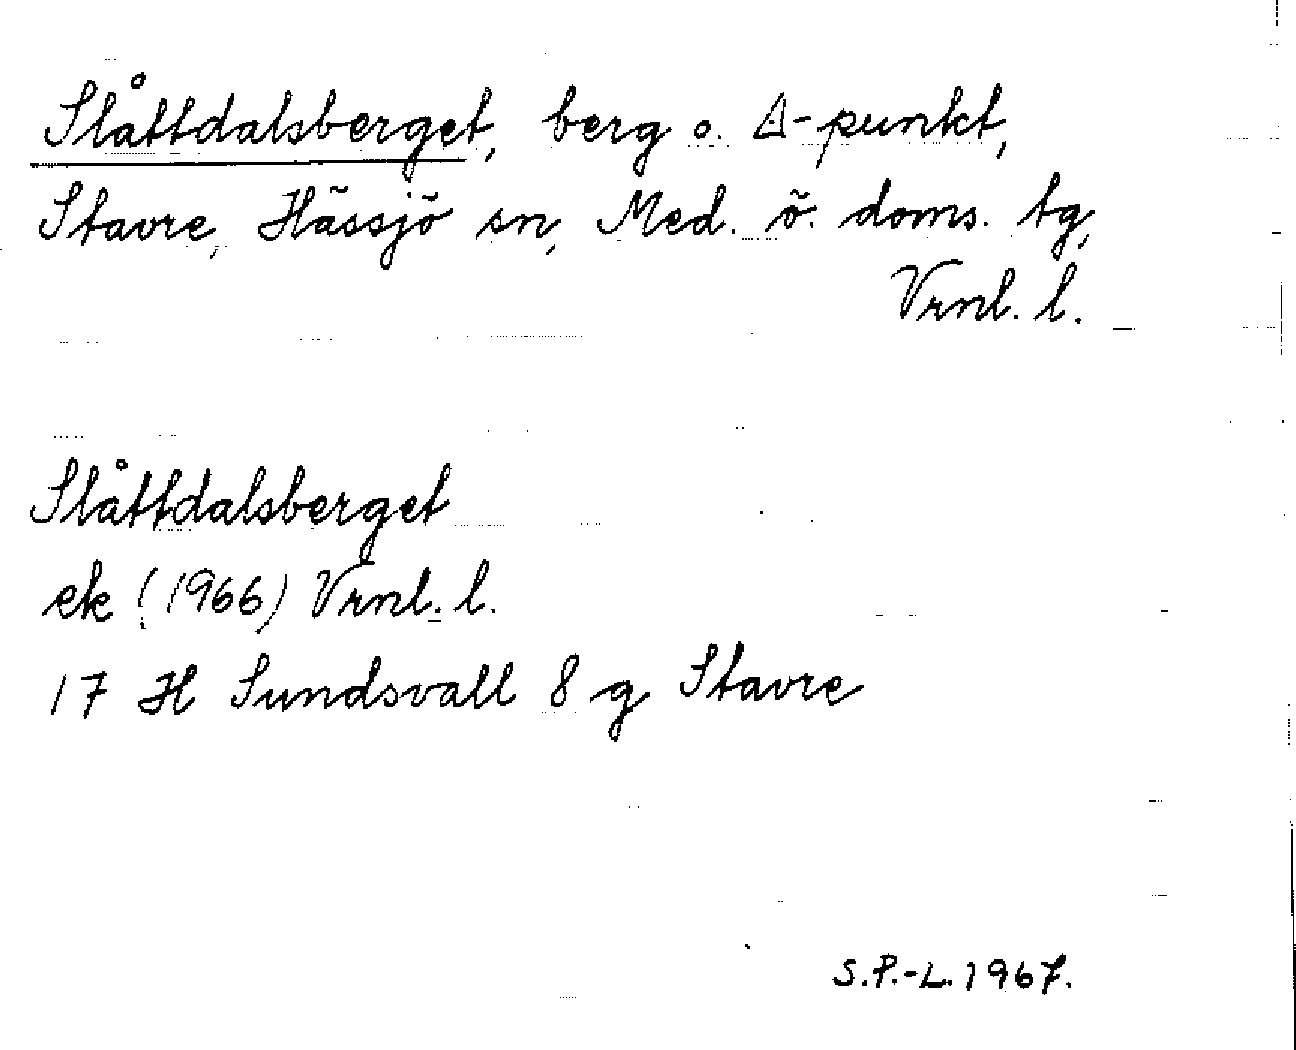 Slåttdalsberget, berg o. ∆-punkt,
Stavre, Hässjö sn, Med. ö. doms. tg,
Vrnl. l.
Slåttdalsberget
ek (1966) Vrnl. l.
17 H Sundsvall 8 g Stavre
S.P.-L. 1967.